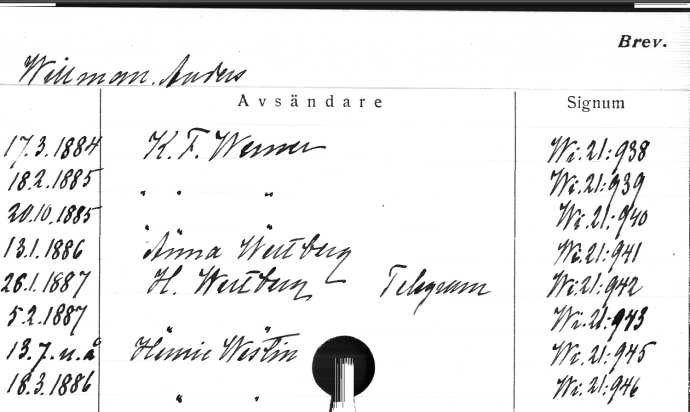 Brev.
Willman. Anders
Avsändare Signum
17.3.1884 K. F. Werner Wi.21:938
18.2.1885 " " " Wi.21:939
20.10.1885 " " Wi.21:940
13.1.1886 Anna Wertberg Wi.21:941
26.1.1887 H. Wertberg Telegram Wi.21:942
5.2.1887 " " Wi.21:943
13.7.u.å Westin Wi.21:945
18.3.1886 " " Wi.21:946